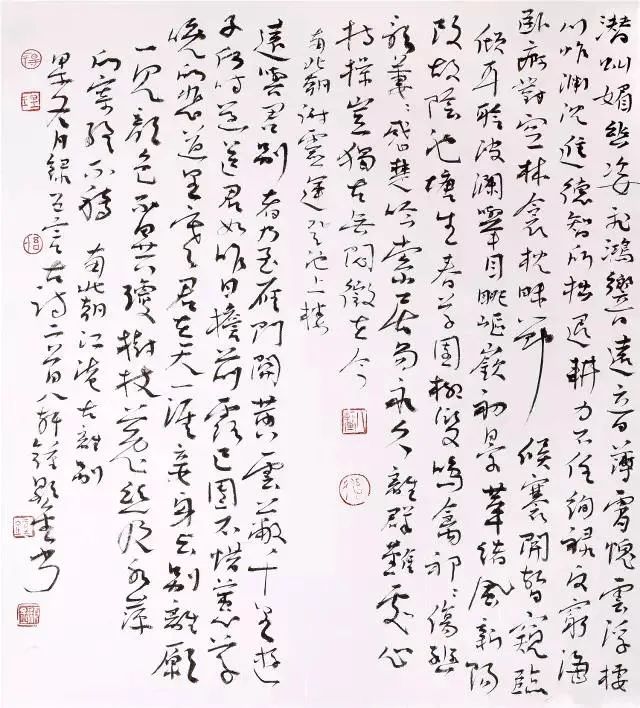 潜虬媚幽姿飛鴻響遠音薄霄愧雲浮棲
川怍淵沉進德智所拙退耕力不任徇禄反窮海
卧痾對空林衾枕昧節候褰開暫窺臨
傾耳聆波瀾舉目眺嶇嶔初景革緒風新陽
改故陰池塘生春草園柳變鳴禽祁祁傷豳
歌萋萋感楚吟索居易永久離群難處心
持操豈獨古無悶徵在今
南北朝謝靈運登池上樓
遠與君別者乃至雁門關黄雲蔽千里遊
子何時還送君如昨日檐前露已團不惜蕙草
晚所悲道里寒君在天一涯妾身長別離願
一見顔色不異瓊樹枝菟絲及水萍
所寄終不移 南北朝江淹古離別
月録五言古詩二首書